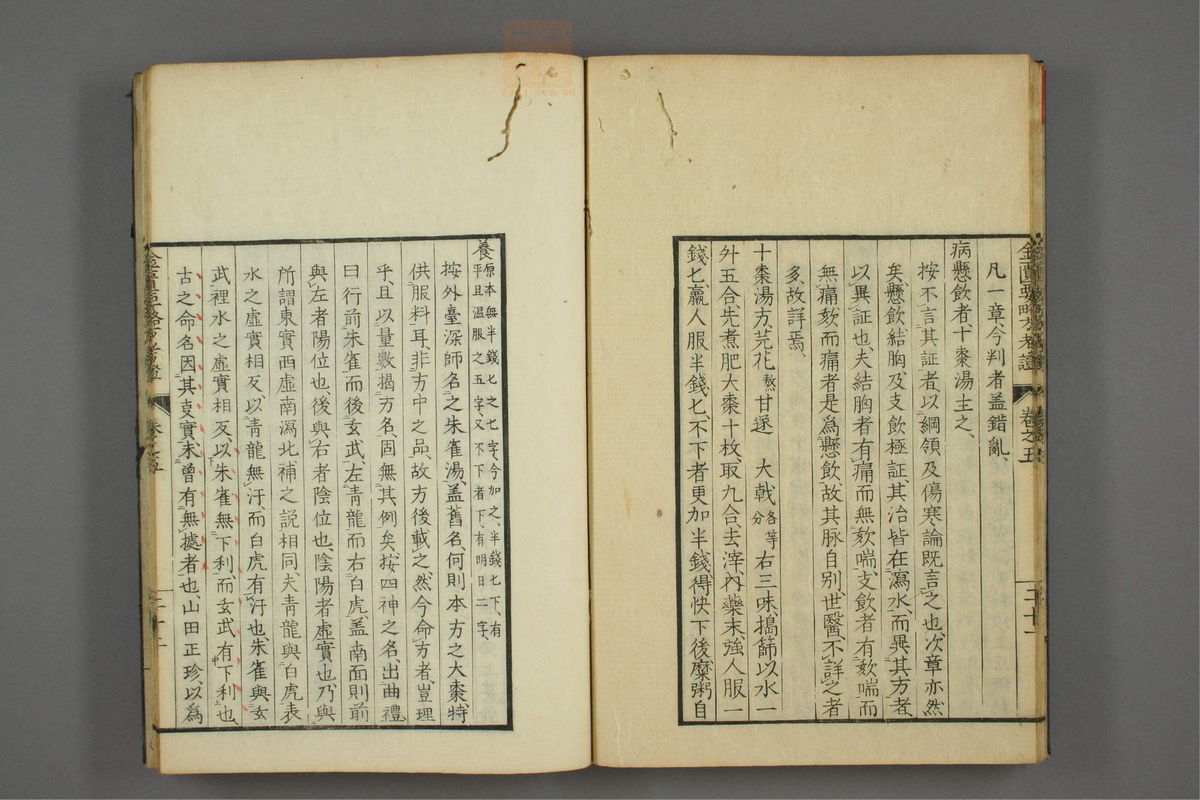 金匱要略方考證 卷之五 三十一
凡一章、今判者盖錯亂、
病懸飲者、十棗湯主之、
按、不言其証者、以綱領及傷寒論既言之也、次章亦然
矣、懸飲結胸及支飲極証、其治皆在瀉水、而異其方者、
以異証也、夫結胸者、有痛而無欬喘、支飲者、有欬喘而
無痛、欬而痛者、是爲懸飲、故其脉自別、世醫不詳之者
多、故詳焉、
十棗湯方、芫花熬 甘遂 大戟各等分 右三味、搗篩以水一
外五合、先煮肥大棗十枚、取九合、去滓、內藥末、強人服一
錢匕、羸人服半錢匕、不下者、更加半錢、得快下後、糜粥自
養原本無半錢匕之七字、今加之、半錢匕下、有平旦溫服之五字、又不下者下、有明日二字、
按、外臺深師名之朱雀湯、盖舊名、何則本方之大棗、特
供服料耳、非方中之品、故方後載之、然今命方者、豈理
乎、且以量數揭方名、固無其例矣、按四神之名、出曲禮
曰、行前朱雀而後玄武、左青龍而右白虎、盖南面則前
與左者陽位也、後與右者陰位也、陰陽者虛實也、乃與
所謂東實西虛南瀉北補之説相同、夫青龍與白虎、表
水之虛實相反、以青龍無汗、而白虎有汗也、朱雀與玄
武、裡水之虛實相反、以朱雀無下利、而玄武有下利也、
古之命名、因其事實、未曾有無據者也、山田正珍、以爲